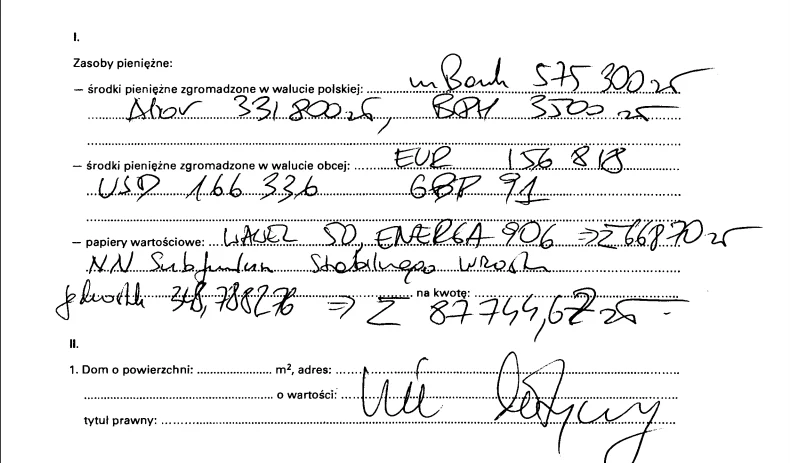 I.
Zasoby pieniężne:
– środki pieniężne zgromadzone w walucie polskiej: mBank 575 300 zł
Alior 331 800 zł, BPH 3500 zł
– środki pieniężne zgromadzone w walucie obcej: EUR 156 818
USD 166 336 GBP 91
– papiery wartościowe: WAWEL 50, ENERGA 906 => Σ 66870 zł
NN Subfundusz Stabilnego Wzrostu
jednostek 348,788276 => Σ na kwotę: 87 744,62 zł
II.
1. Dom o powierzchni: m², adres:
o wartości: Nie dotyczy
tytuł prawny: